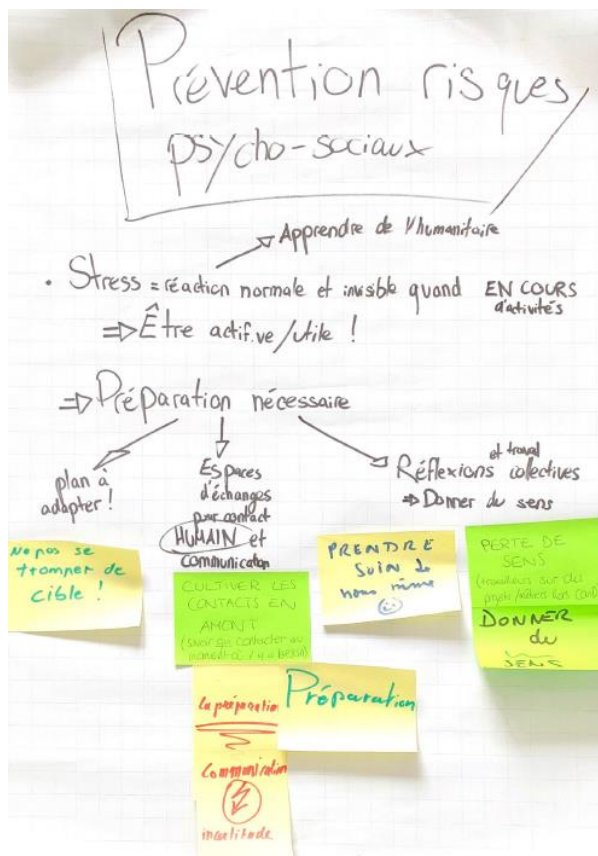 Prévention risques
psycho-sociaux
Apprendre de l'humanitaire
• Stress = réaction normale et invisible quand EN COURS
d'activités
⇒ Être actif.ve/utile !
⇒ Préparation nécessaire
plan à
adapter !
Espaces
d'échanges
pour contact
HUMAIN et
communication
et travail
Réflexions collectives
⇒ Donner du sens
Ne pas se
tromper de
cible !
CULTIVER LES
CONTACTS EN
AMONT
(savoir qui contacter au
PRENDRE
SOIN de
nous même
PERTE DE
SENS
(travailleurs sur des
DONNER
du
SENS
La préparation
Communication
incertitude
Préparation